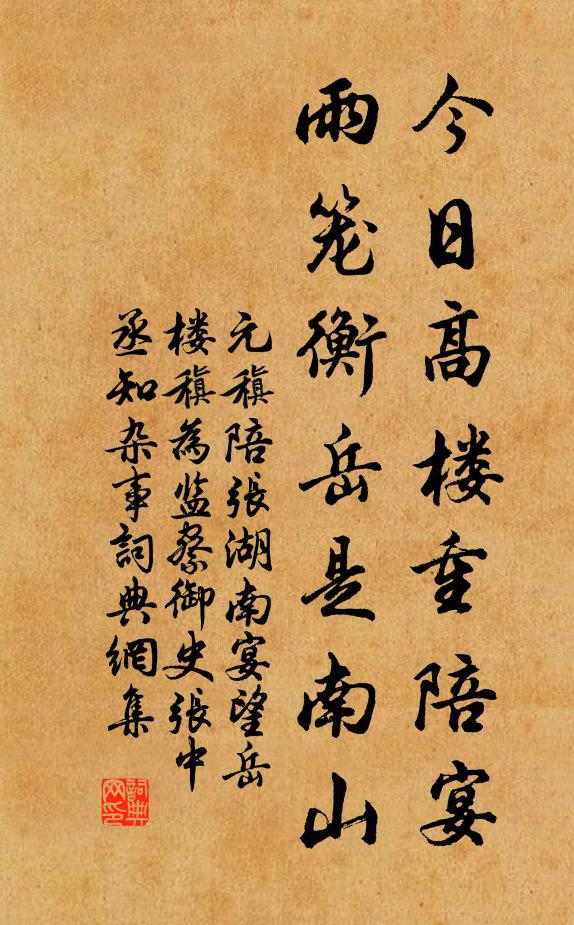 今日高楼重陪宴
雨笼衡岳是南山
元稹陪张湖南宴望岳
楼稹為监察御史张中
丞知杂事詞典網集
詞典网印